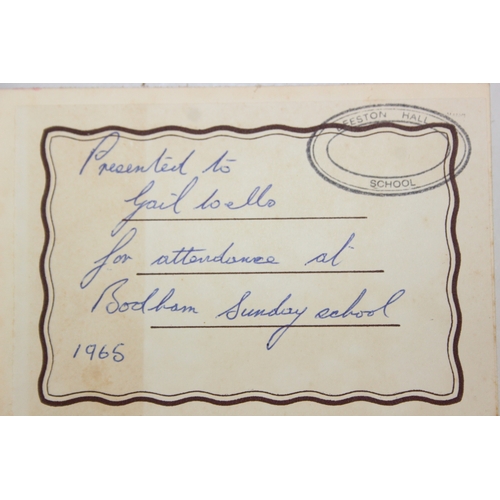 BEESTON HALL
SCHOOL
Presented to
Gail Wells
for attendance at
Bodham Sunday school
1965